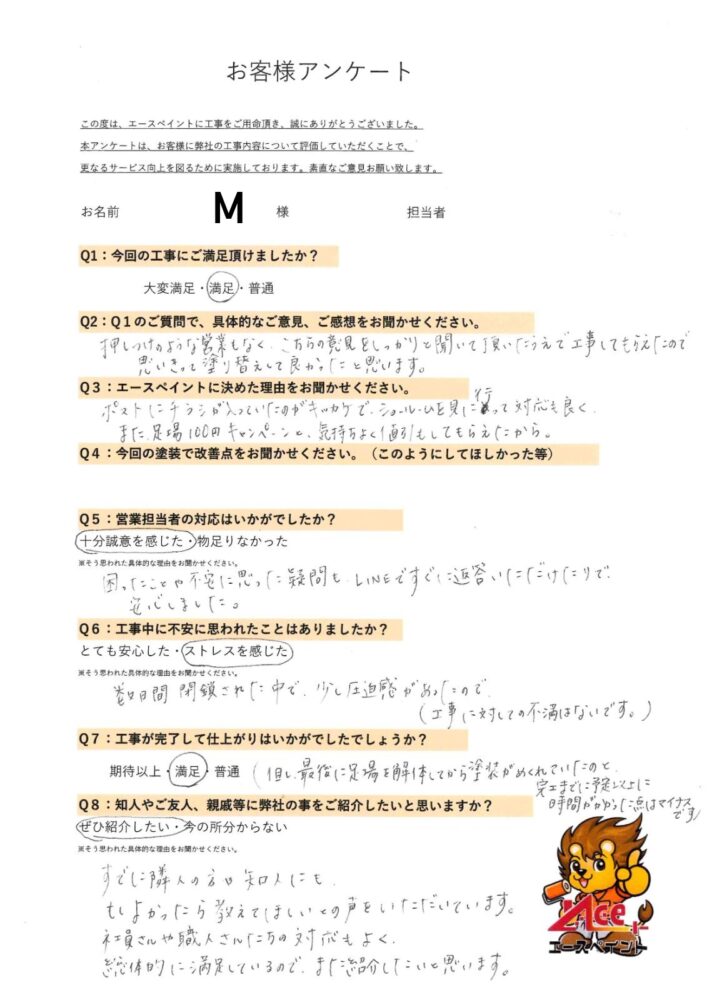 お客様アンケート
この度は、エースペイントに工事をご用命頂き、誠にありがとうございました。
本アンケートは、お客様に弊社の工事内容について評価していただくことで、
更なるサービス向上を図るために実施しております。素直なご意見お願い致します。
お名前 M 様 担当者
Q1：今回の工事にご満足頂けましたか？
大変満足・満足・普通
Q2：Q１のご質問で、具体的なご意見、ご感想をお聞かせください。
押しつけのような営業もなく、こちらの意見をしっかりと聞いて頂いたうえで工事してもらえたので
思いきって塗り替えして良かったと思います。
Q３：エースペイントに決めた理由をお聞かせください。
ポストにチラシが入っていたのがキッカケで、ショールームを見に行って対応も良く、
また、足場100円キャンペーンと、気持ちよく値引もしてもらえたから。
Q４：今回の塗装で改善点をお聞かせください。（このようにしてほしかった等）
Q５：営業担当者の対応はいかがでしたか？
十分誠意を感じた・物足りなかった
※そう思われた具体的な理由をお聞かせください。
困ったことや不安に思った疑問も、LINEですぐに返答いただけたりで、
安心しました。
Q６：工事中に不安に思われたことはありましたか？
とても安心した・ストレスを感じた
※そう思われた具体的な理由をお聞かせください。
数日間 閉鎖された中で、少し圧迫感があったので、
（工事に対しての不満はないです。）
Q７：工事が完了して仕上がりはいかがでしたでしょうか？
期待以上・満足・普通 （但し、最後に足場を解体してから塗装がめくれていたのと、
完工までに予定以上に
時間がかかった点はマイナスです）
Q８：知人やご友人、親戚等に弊社の事をご紹介したいと思いますか？
ぜひ紹介したい・今の所分からない
※そう思われた具体的な理由をお聞かせください。
すでに隣人の方や知人にも、
もしよかったら教えてほしいとの声をいただいています。
社員さんや職人さんたちの対応もよく、
総体的に満足しているので、また紹介したいと思います。
Ace
エースペイント